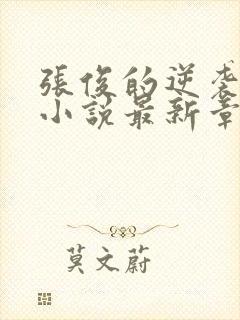 張俊的逆袭
小說最新章
莫文蔚